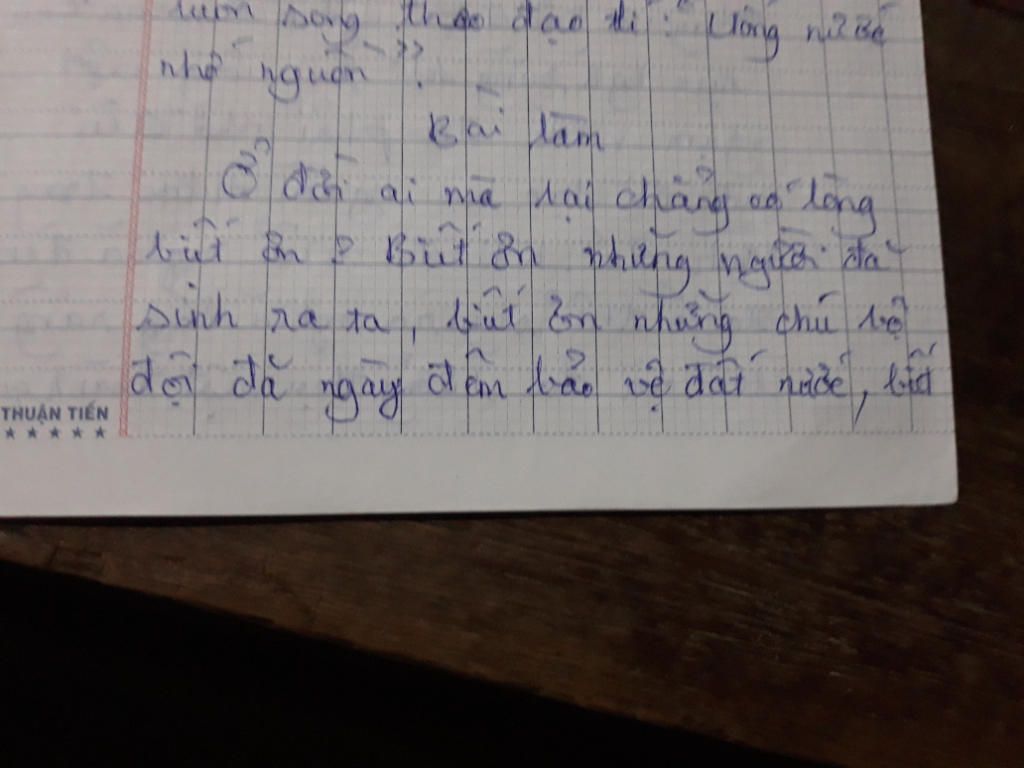 luôn sống theo đạo lí: "Uống nước
nhớ nguồn".
Bài làm
Ở đời ai mà lại chẳng có lòng
biết ơn? Biết ơn những người đã
sinh ra ta, biết ơn những chú bộ
đội đã ngày đêm bảo vệ đất nước, biết
THUẬN TIẾN
★★★★★